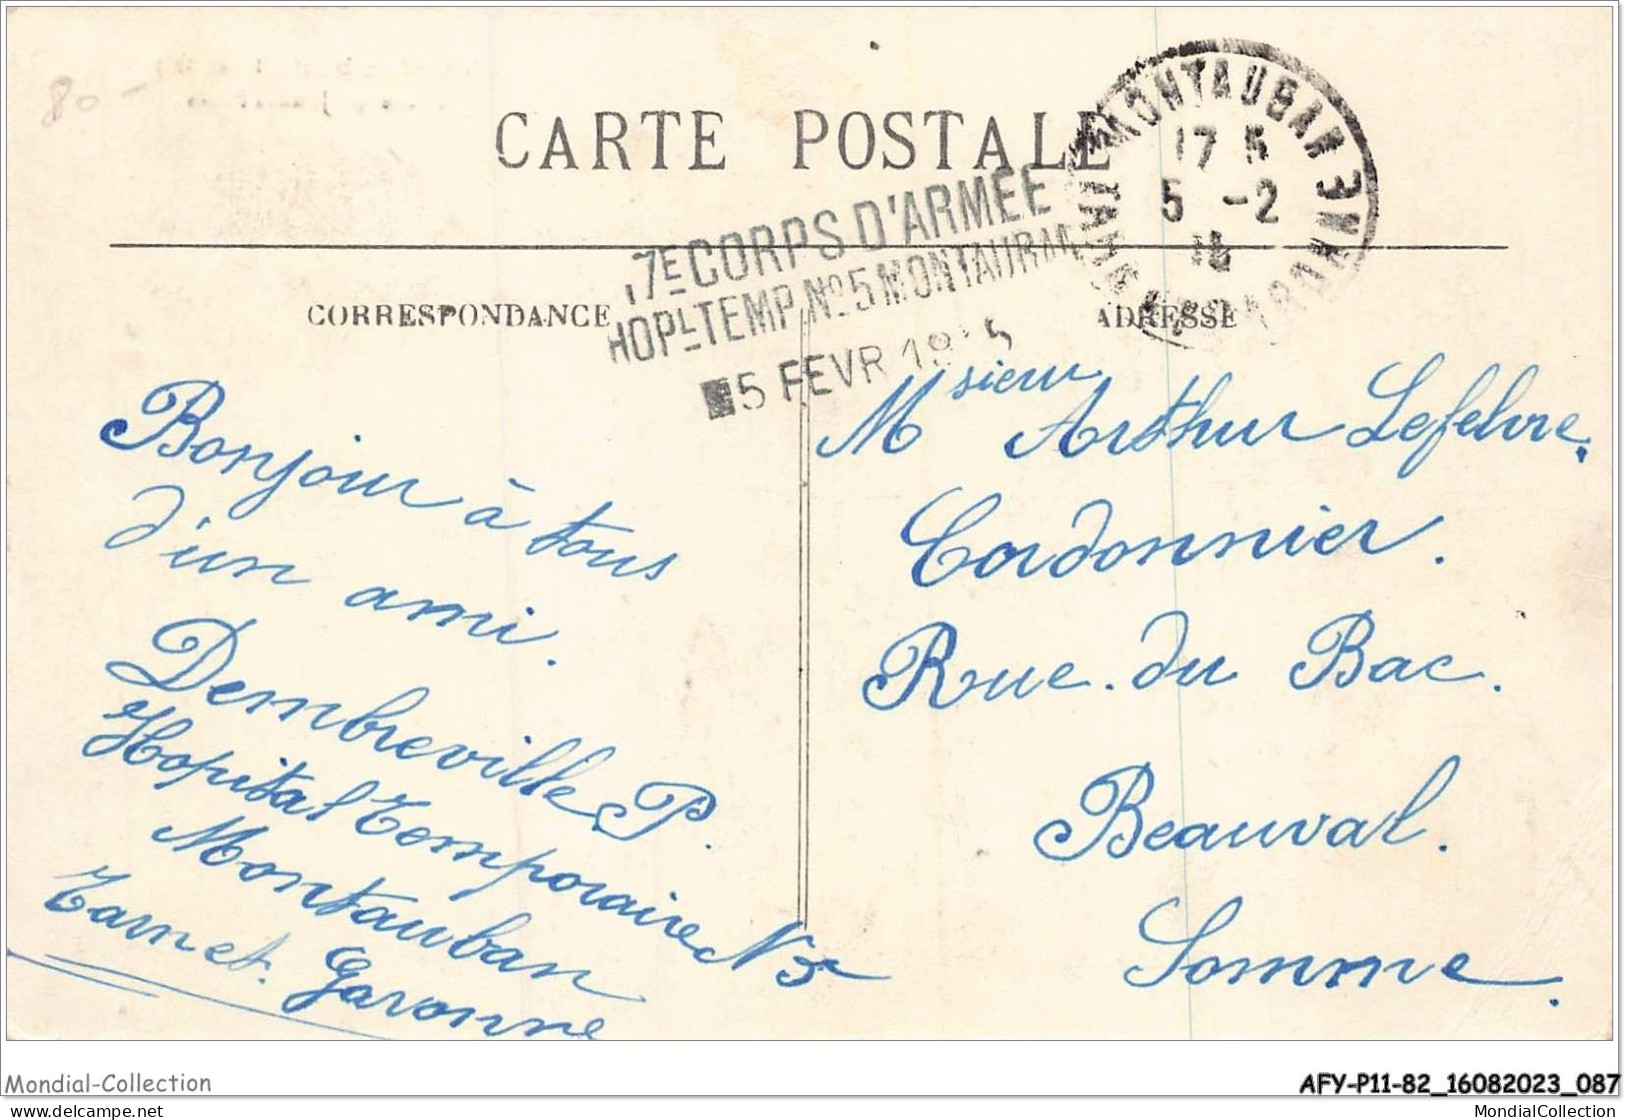 80 -
CARTE POSTALE
MONTAUBAN
17 5
5 -2
15
17E CORPS D'ARMÉE
HOPL TEMP. No 5 MONTAUBAN
5 FEVR 1915
CORRESPONDANCE
ADRESSE
Bonjour à tous
d'un ami.
Dembreville P.
Hopital Temporaire N 5
Montauban
Tarn et. Garonne
Msieur Arthur Lefebvre.
Cordonnier.
Rue. du Bac.
Beauval.
Somme.
Mondial-Collection
AFY-P11-82_16082023_087
delcampe.net
MondialCollection